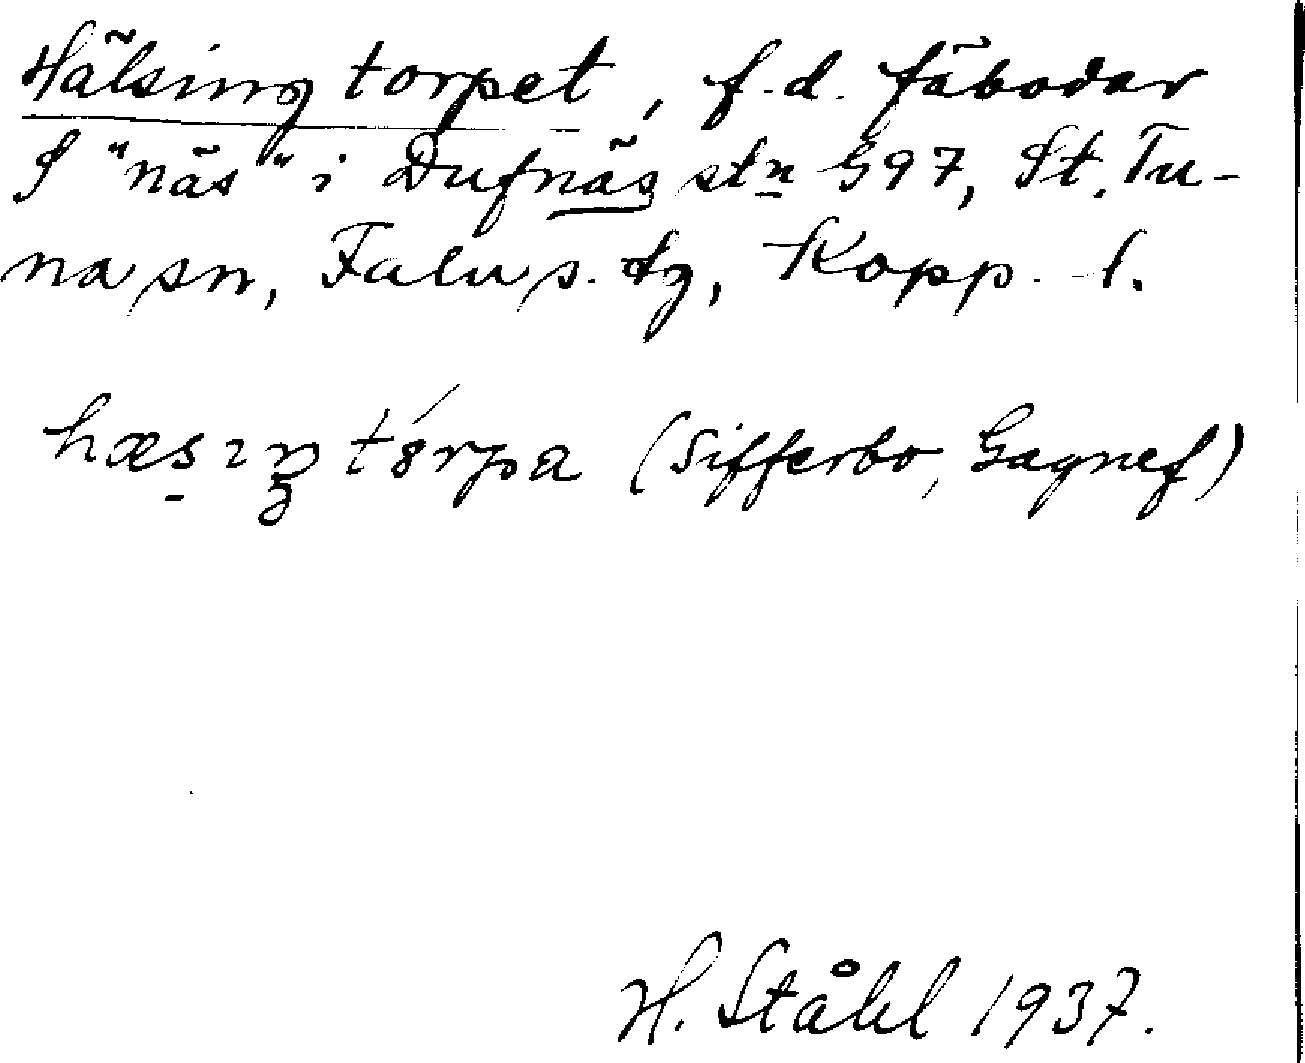 Hälsingtorpet, f.d. fäbodar
S "näs" i Dufnäs stn G97, St. Tu-
na sn, Falu s. tg, Kopp. l.
(Sifferbo, Gagnef)
H. Ståhl 1937.